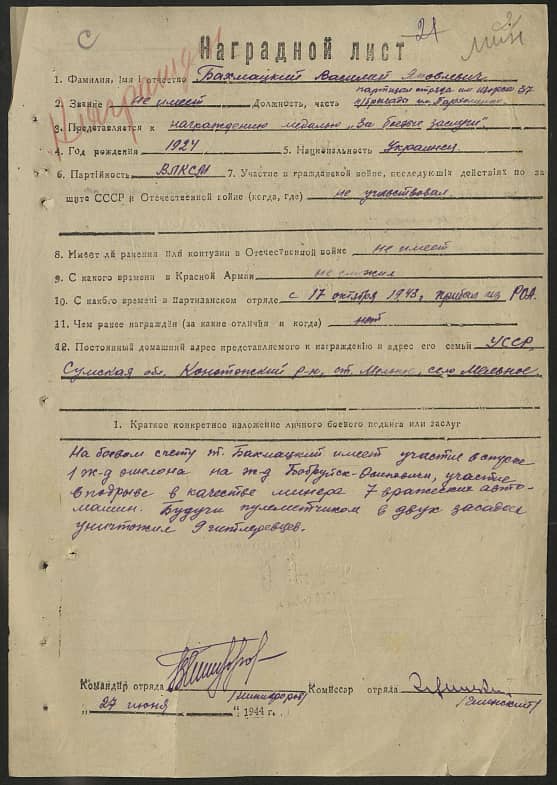 С
21
Наградной лист
1. Фамилия, имя и отчество Бахмацкий Василий Яковлевич
партизан отряда
2. Звание Не имеет Должность, часть
3. Представляется к награждению медалью „За боевые заслуги".
4. Год рождения 1924 5. Национальность Украинец
6. Партийность ВЛКСМ 7. Участие в гражданской войне, последующих действиях по за
щите СССР и Отечественной войне (когда, где) не участвовал
8. Имеет ли ранения или контузии в Отечественной войне не имеет
9. С какого времени в Красной Армии не служил
10. С какого времени в Партизанском отряде с 17 октября 1943, прибыл из РОА.
11. Чем ранее награжден (за какие отличия и когда) нет
12. Постоянный домашний адрес представляемого к награждению и адрес его семьи УССР,
Сумская обл. Конотопский р-н, ст. село
1. Краткое конкретное изложение личного боевого подвига или заслуг
На боевом счету т. Бахмацкий имеет участие в спуске
1 ж-д эшелона на ж-д Бобруйск-Осиповичи, участие
в подрыве в качестве минера 7 вражеских авто-
машин. Будучи пулеметчиком в двух засадах
уничтожил 9 гитлеровцев.
Командир отряда
(Никифоров)
Комиссар отряда
„27 июня" 1944 г.